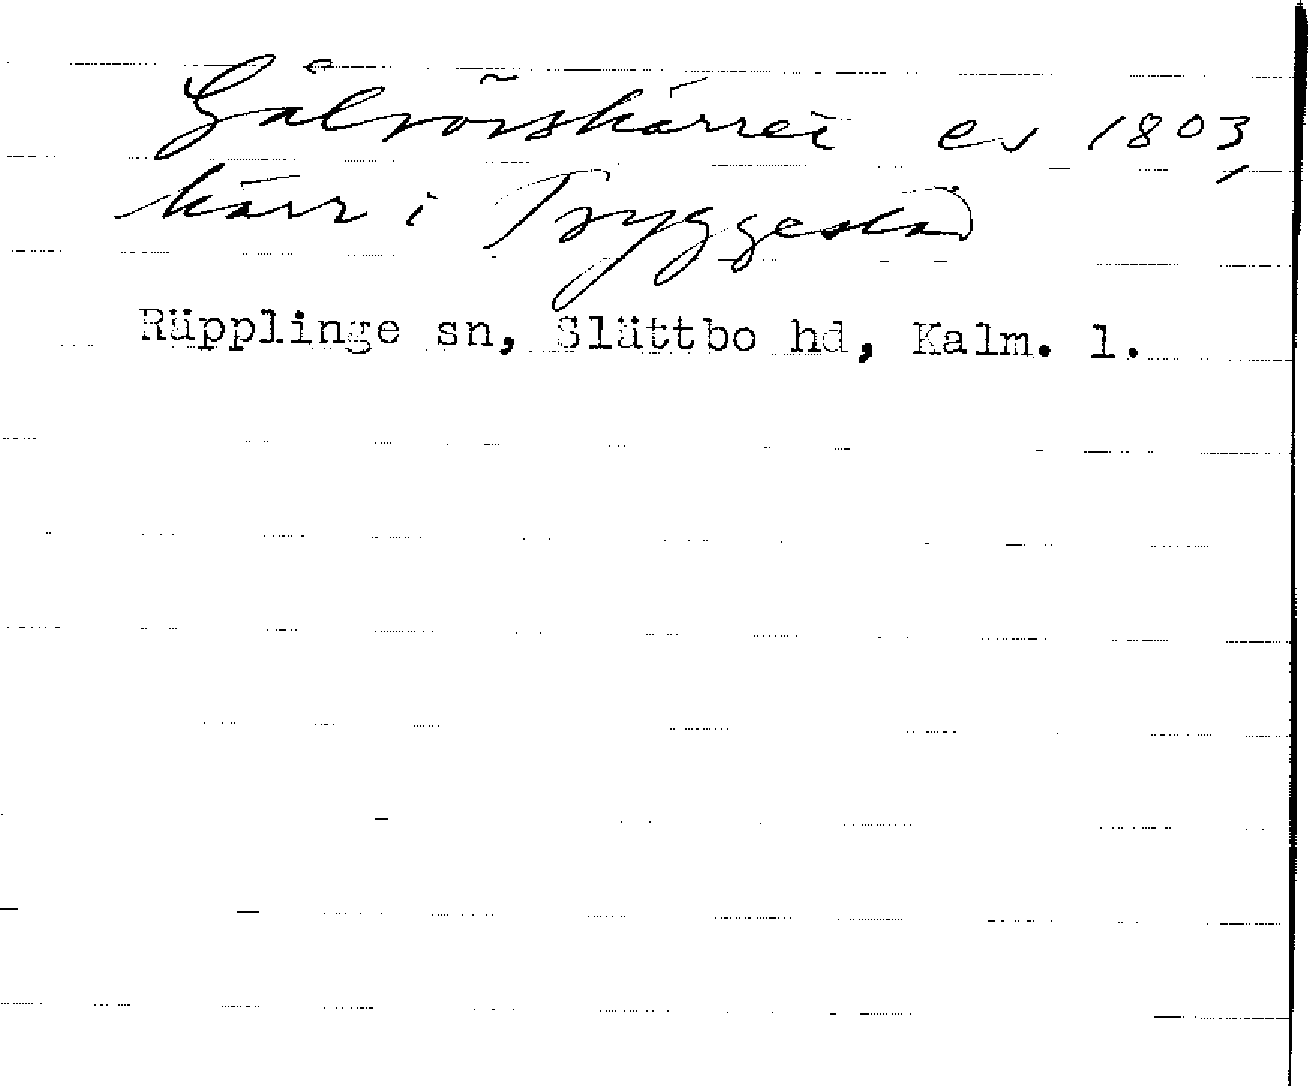 Gålrörskärret ev 1803,
kärr i Tryggestad
Räpplinge sn, Slättbo hd, Kalm. l.